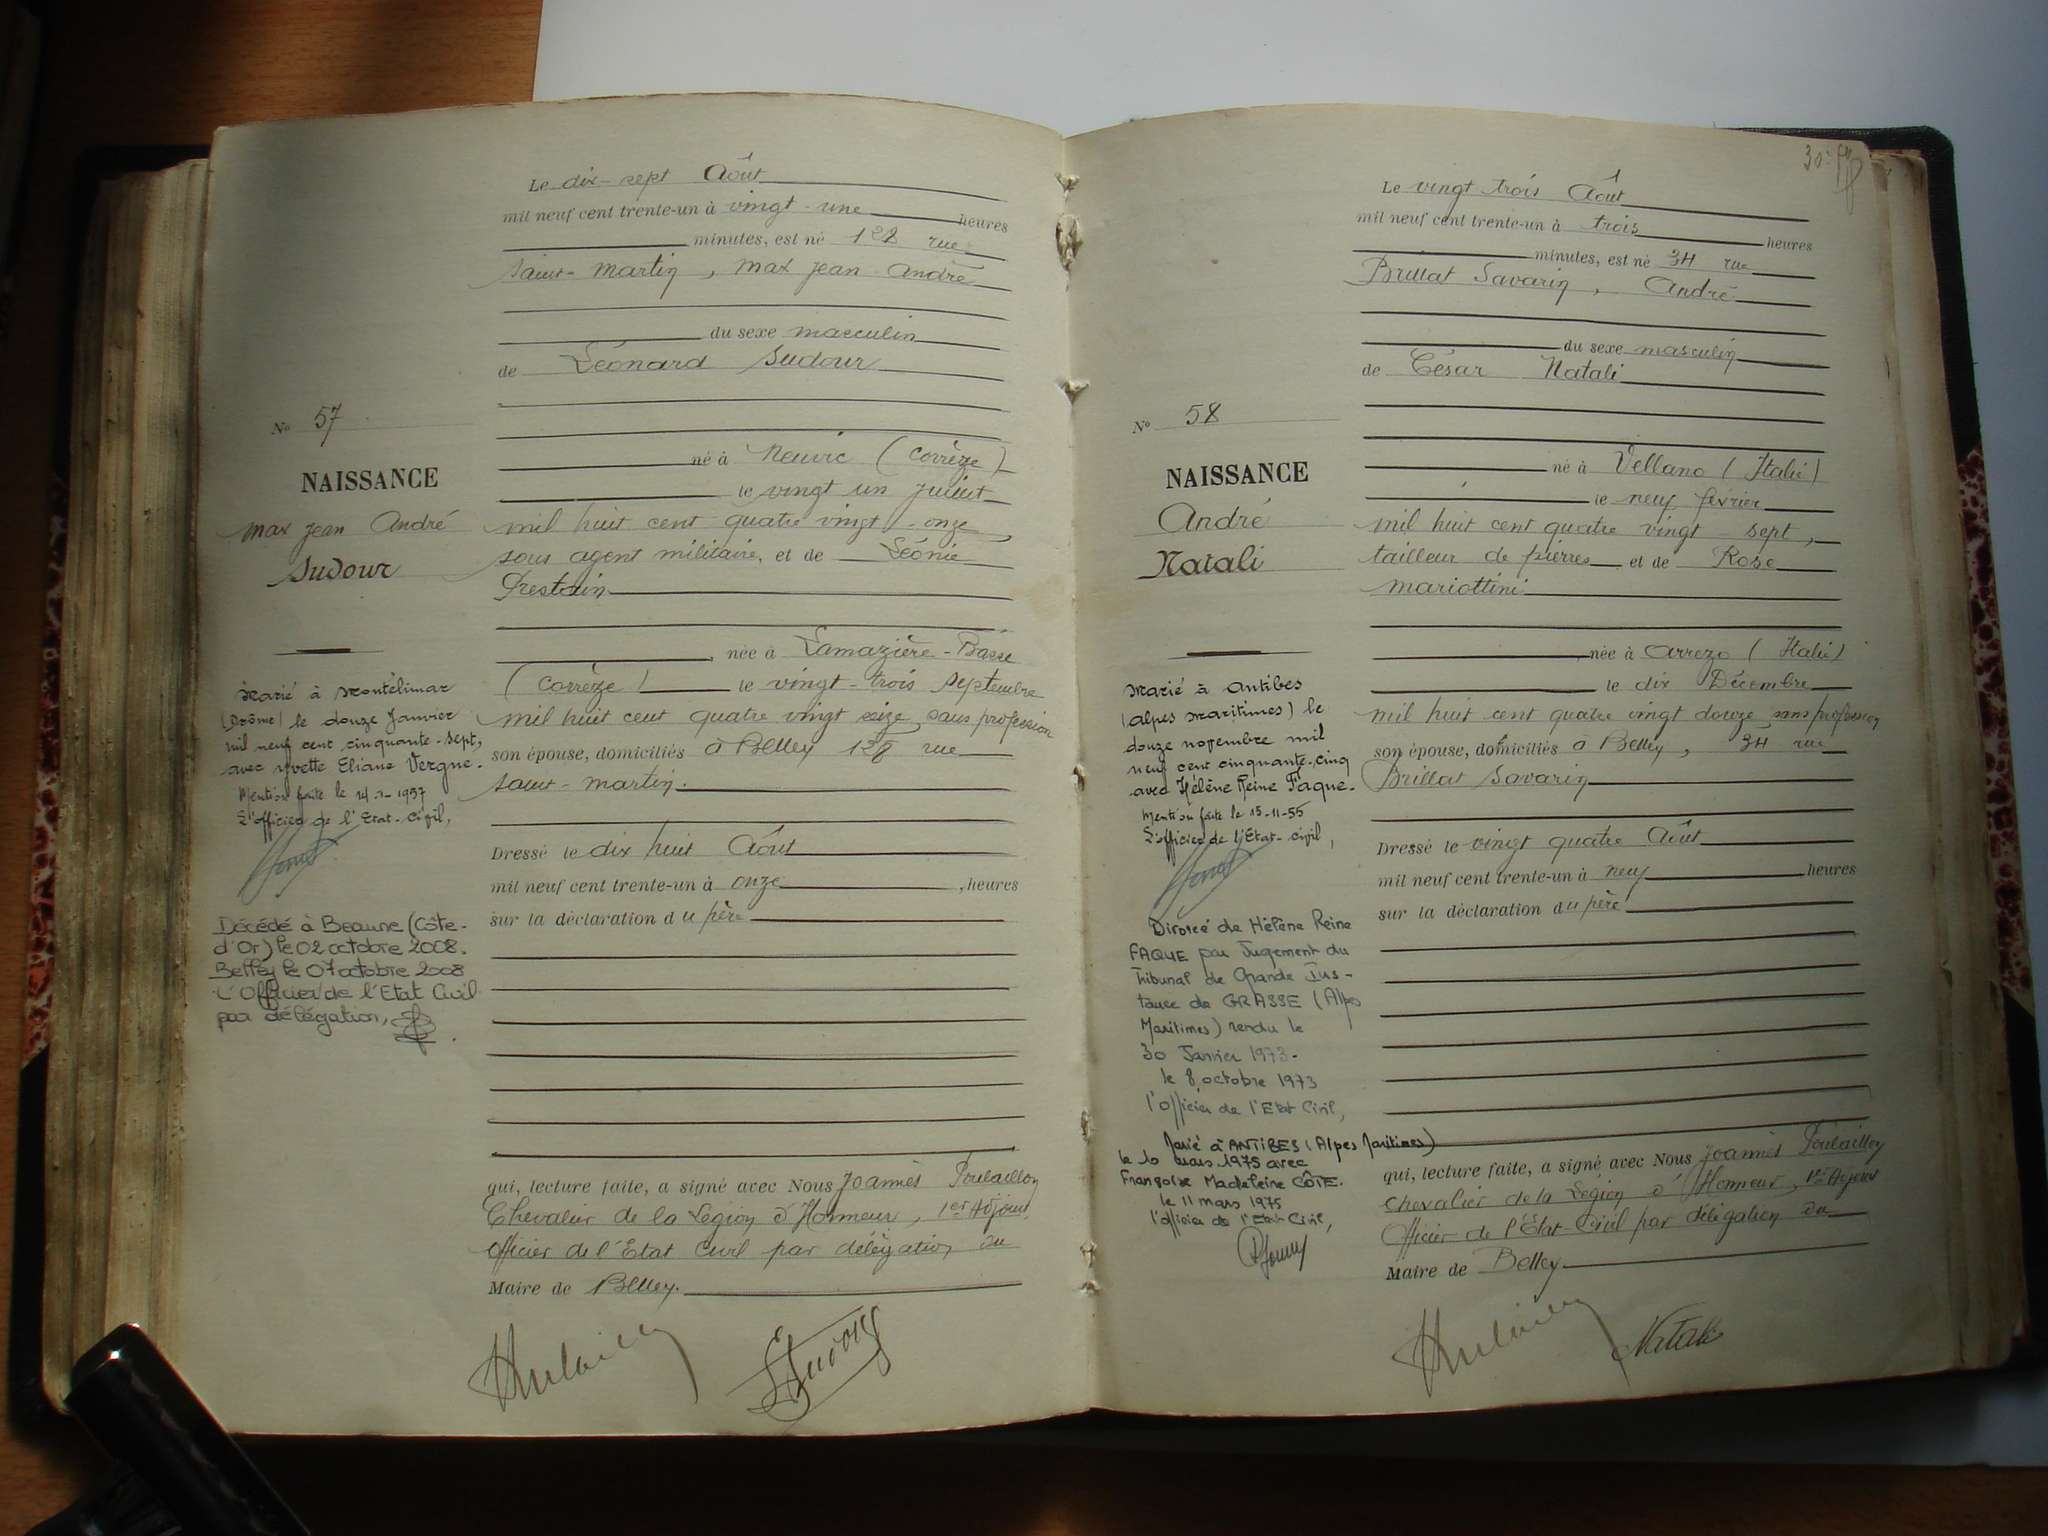 Le dix-sept Août
mil neuf cent trente-un à vingt-une heures
minutes, est né 128 rue
Saint-Martin, Max Jean André
du sexe masculin
de Léonard Sudour
né à Neuvic (Corrèze)
le vingt un juillet
mil huit cent quatre vingt-onze,
sous agent militaire, et de Léonie
née à Lamazière-Basse
(Corrèze) le vingt-trois septembre
mil huit cent quatre vingt seize, sans profession
son épouse, domiciliés à Belley 128 rue
Saint-Martin.
Dressé le dix huit Août
mil neuf cent trente-un à onze, heures
sur la déclaration du père
qui, lecture faite, a signé avec Nous Joannès Poulaillon
Chevalier de la Légion d'Honneur, 1er Adjoint
Officier de l'Etat Civil par délégation du
Maire de Belley.
No 57
NAISSANCE
Max Jean André
Sudour
Marié à Montélimar
(Drôme) le douze Janvier
mil neuf cent cinquante-sept,
avec Yvette Eliane Vergne.
Mention faite le 14-1-1957
L'officier de l'Etat-civil,
Décédé à Beaune (Côte-
d'Or) le 02 octobre 2008.
Belley le 07 octobre 2008
L'Officier de l'Etat Civil
par délégation,
Le vingt trois Août
mil neuf cent trente-un à trois heures
minutes, est né 34 rue
Brillat Savarin, André
du sexe masculin
de César Natali
né à Vellano (Italie)
le neuf février
mil huit cent quatre vingt-sept,
tailleur de pierres et de Rose
Mariottini
née à Arrezo (Italie)
le dix Décembre
mil huit cent quatre vingt douze, sans profession
son épouse, domiciliés à Belley, 34 rue
Brillat Savarin
Dressé le vingt quatre Août
mil neuf cent trente-un à neuf heures
sur la déclaration du père
qui, lecture faite, a signé avec Nous Joannès Poulaillon
Chevalier de la Légion d'Honneur, 1er Adjoint
Officier de l'Etat Civil par délégation du
Maire de Belley
Natali
No 58
NAISSANCE
André
Natali
Marié à Antibes
(Alpes Maritimes) le
douze novembre mil
neuf cent cinquante-cinq
avec Hélène Reine Faque.
Mention faite le 15-11-55
L'officier de l'Etat-civil,
Divorcé de Hélène Reine
FAQUE par Jugement du
Tribunal de Grande Ins-
tance de GRASSE (Alpes
Maritimes) rendu le
30 Janvier 1973-
le 8 octobre 1973
l'Officier de l'Etat Civil,
Marié à ANTIBES (Alpes Maritimes)
le 10 mars 1975 avec
Françoise Madeleine CÔTE.
le 11 mars 1975
l'officier de l'Etat Civil,